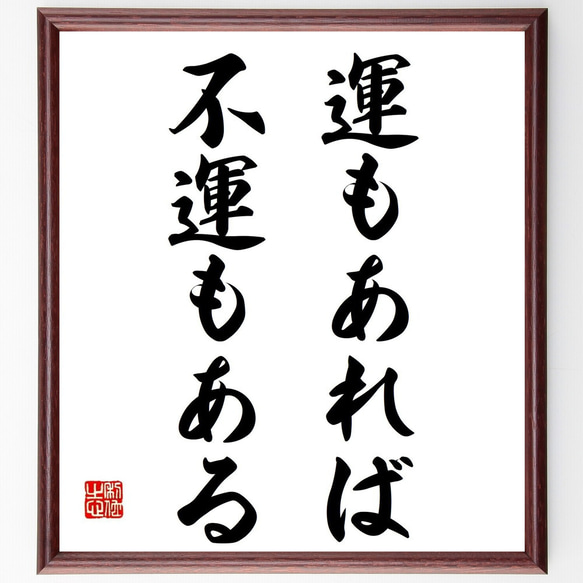 運もあれば
不運もある